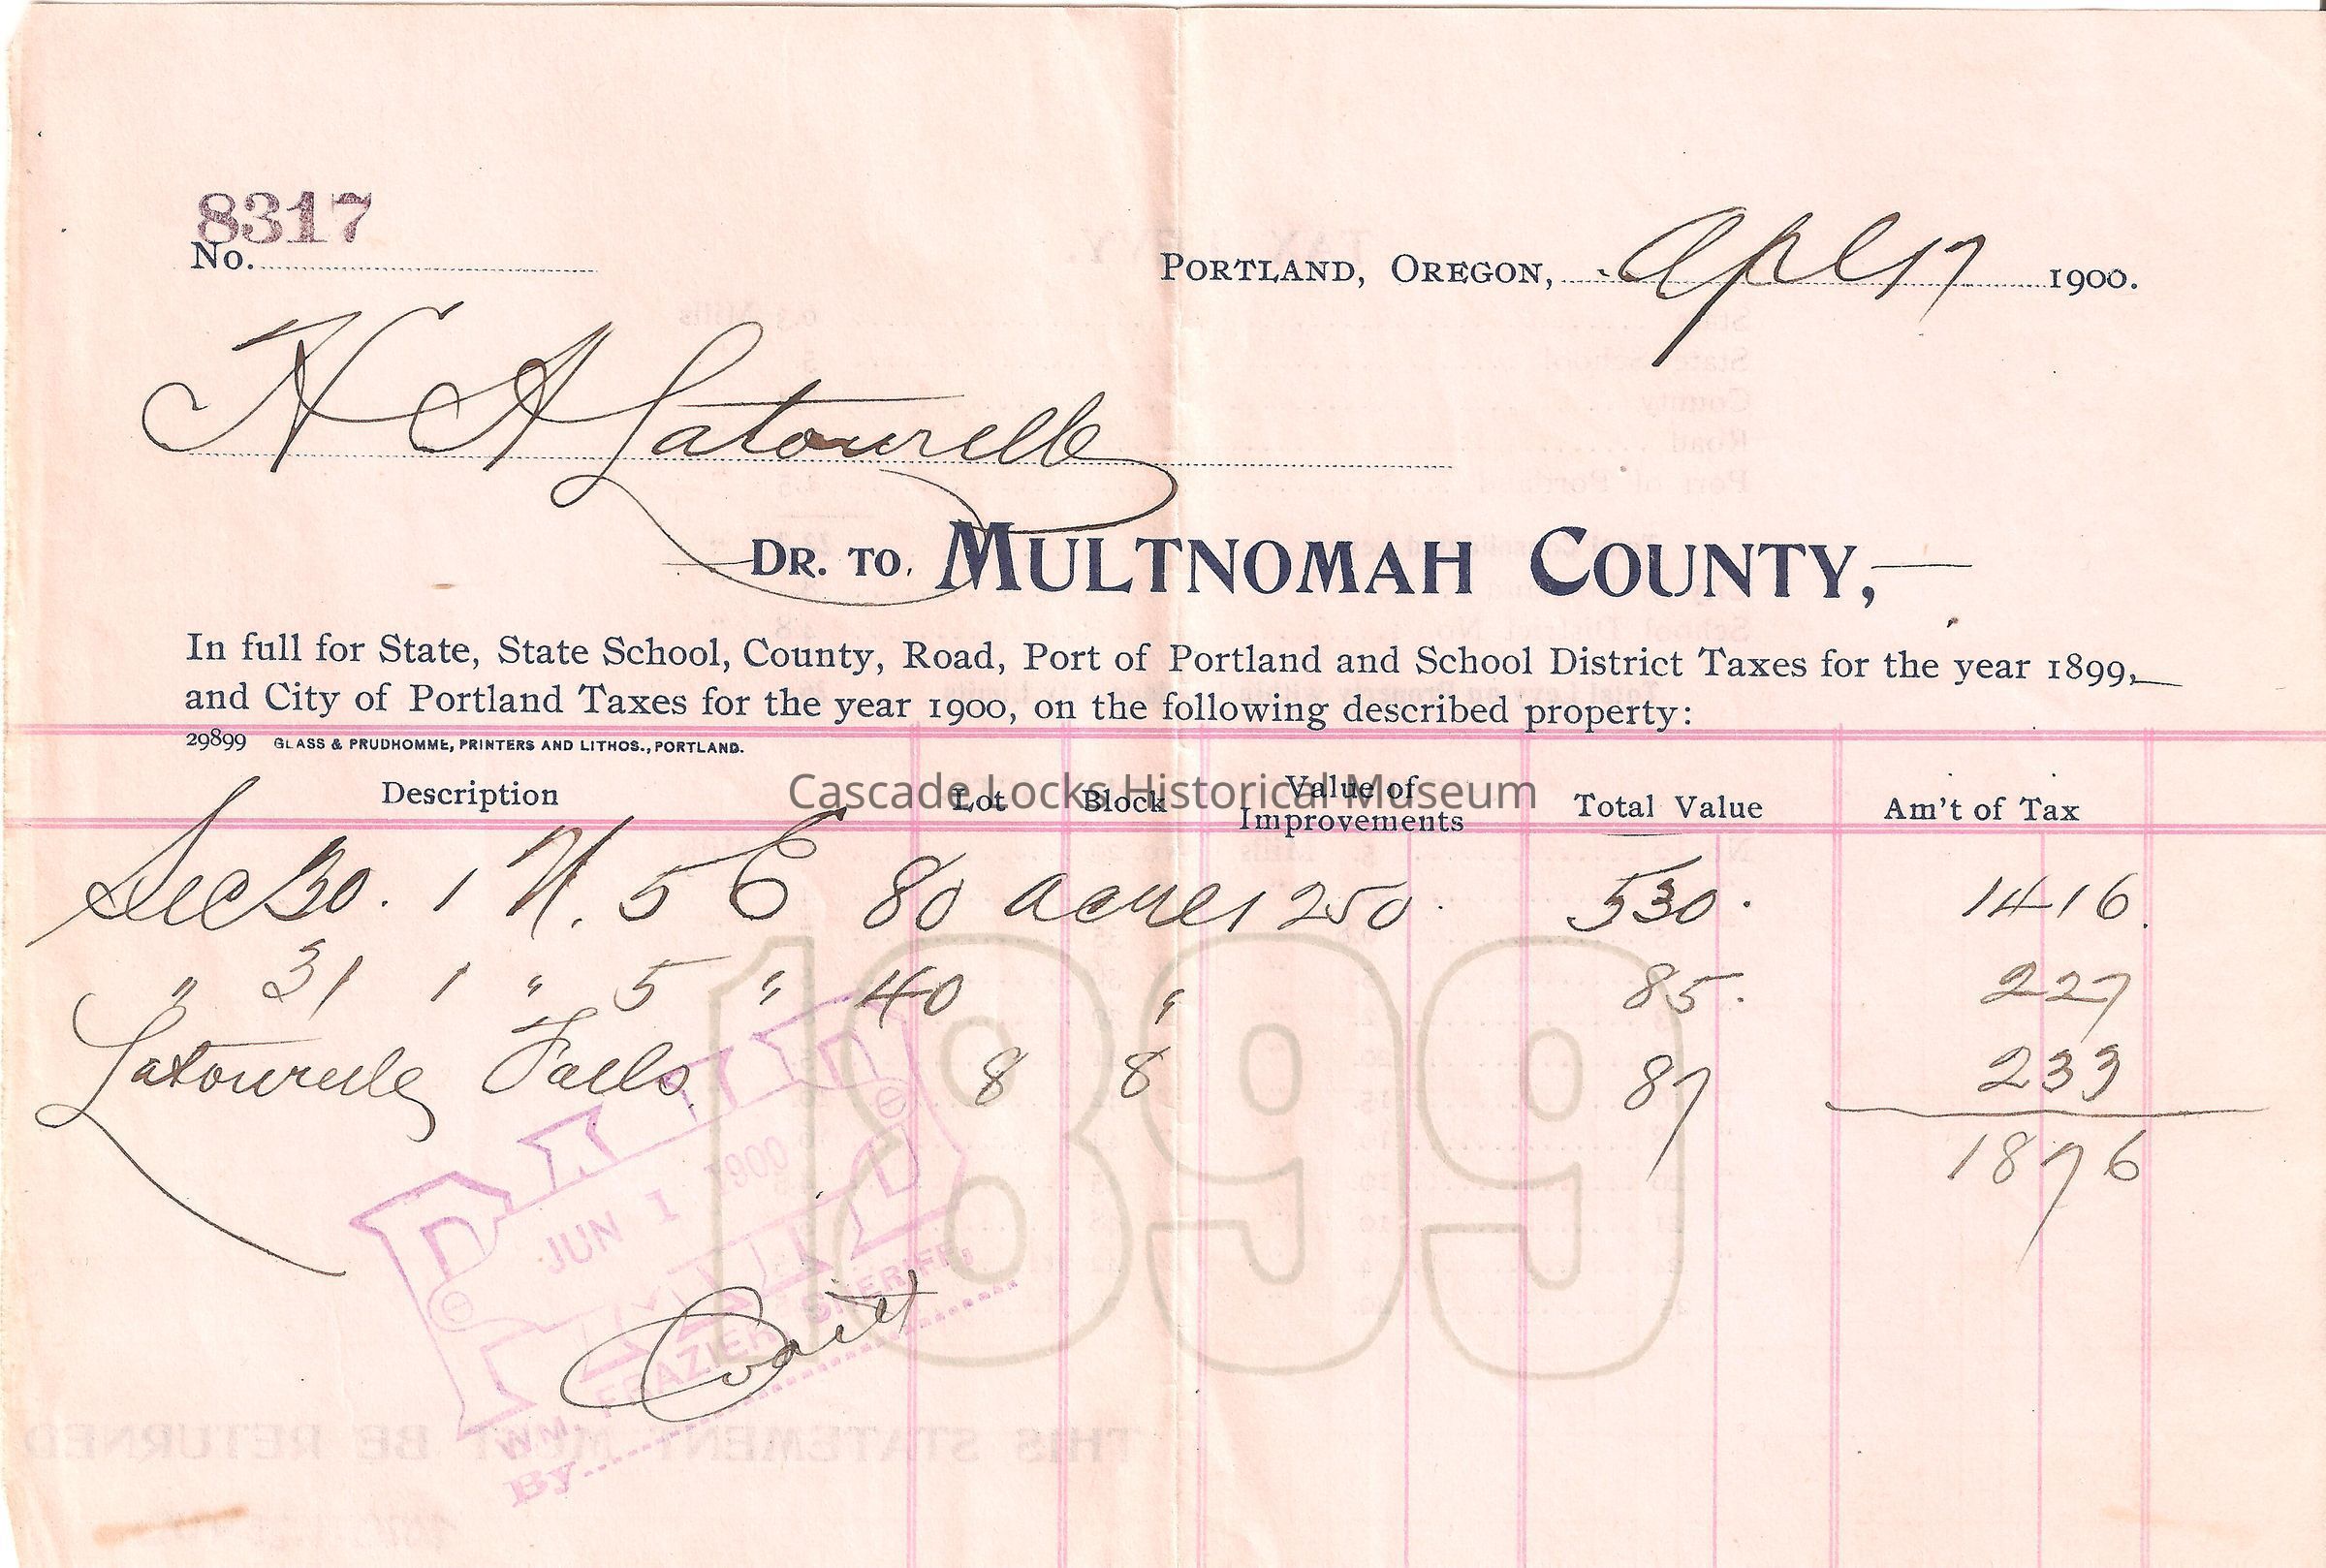 8317
No.
PORTLAND, OREGON, Apl 17 1900.
H A Latourelle
DR. TO. MULTNOMAH COUNTY,
In full for State, State School, County, Road, Port of Portland and School District Taxes for the year 1899,
and City of Portland Taxes for the year 1900, on the following described property:
29899 GLASS & PRUDHOMME, PRINTERS AND LITHOS., PORTLAND.
Cascade Locks Historical Museum
Description Lot Block Value of Improvements Total Value Am't of Tax
Sec 30. 1 N. 5 E 80 acres 250. 530. 14 16.
" 31 1 " 5 " 40 " 85. 2 27
Latourelle Falls. 8 8 87 2 33
18 76
1899
PAID
JUN 1 1900
WM. FRAZIER, SHERIFF,
By
THIS STATEMENT MUST BE RETURNED